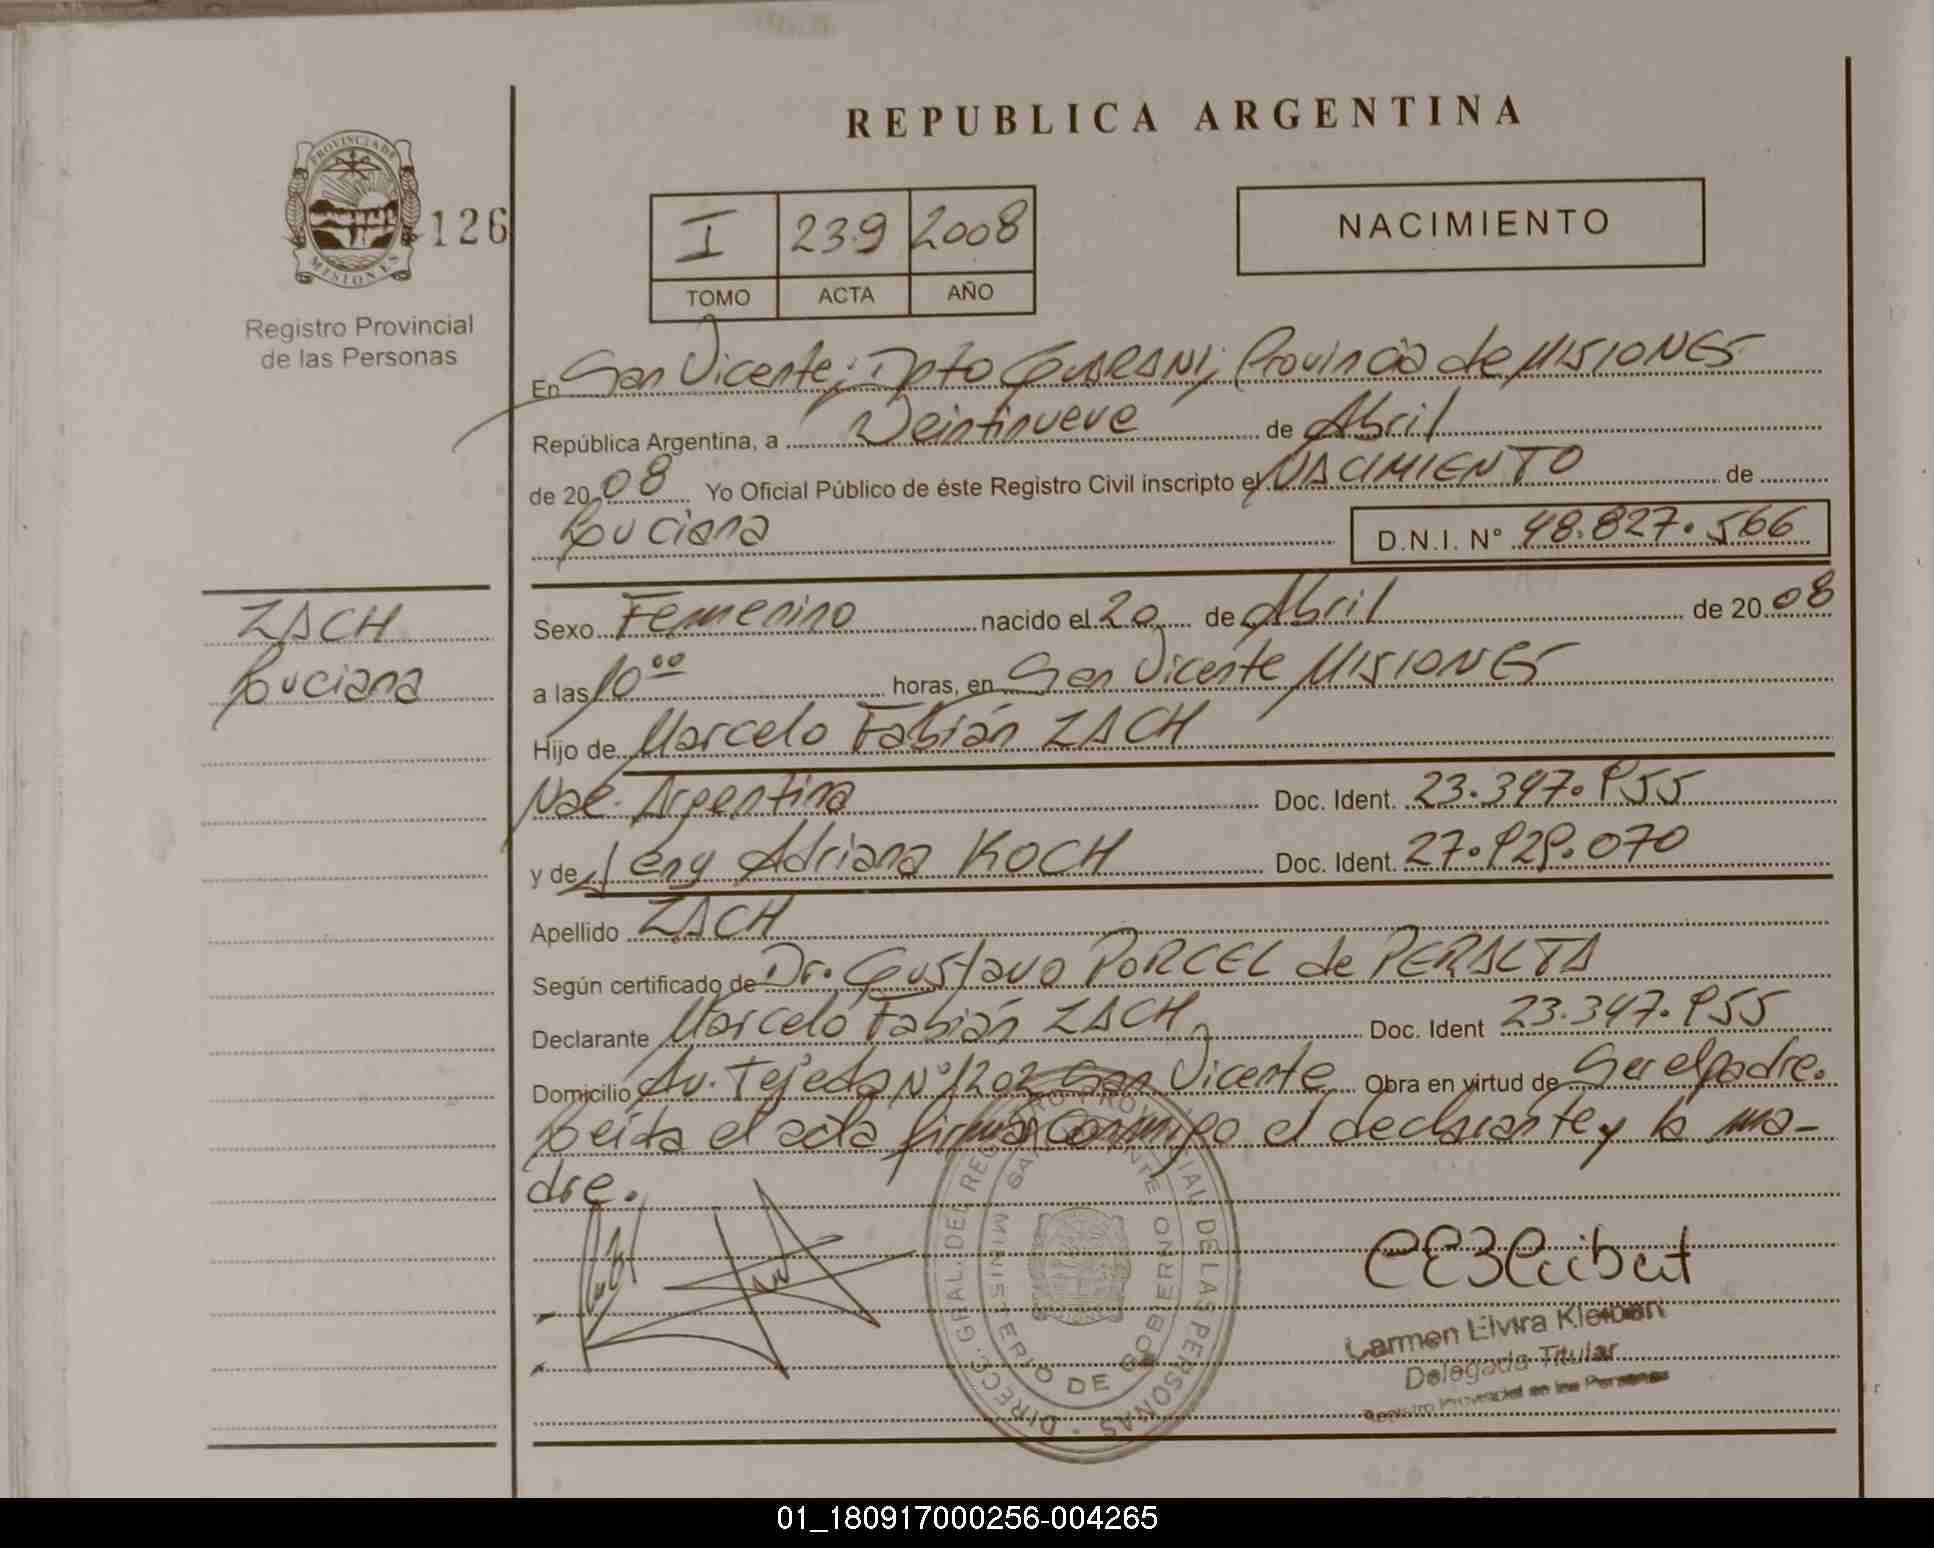 REPUBLICA ARGENTINA
PROVINCIA DE MISIONES
126
Registro Provincial
de las Personas
I 239 2008
TOMO ACTA AÑO
NACIMIENTO
En San Vicente; Dpto GUARANI; Provincia de MISIONES
República Argentina, a Veintinueve de Abril
de 2008 Yo Oficial Público de éste Registro Civil inscripto el NACIMIENTO de
Luciana D.N.I. N° 48.827.566
ZACH
Luciana
Sexo Femenino nacido el 20 de Abril de 2008
a las 10⁰⁰ horas, en San Vicente MISIONES
Hijo de Marcelo Fabián ZACH
Nac. Argentina Doc. Ident. 23.347.955
y de Jeny Adriana KOCH Doc. Ident. 27.929.070
Apellido ZACH
Según certificado de Dr. Gustavo PORCEL de PERALTA
Declarante Marcelo Fabián ZACH Doc. Ident 23.347.955
Domicilio Av. Tejeda N° 1202 San Vicente Obra en virtud de Ser el padre.
Leída el acta firma conmigo el declarante y la ma-
dre.
DIRECC. GRAL. DEL REGISTRO PROVINCIAL DE LAS PERSONAS
SAN VICENTE
MINISTERIO DE GOBIERNO
Carmen Elvira Kleiban
Delegada Titular
01_180917000256-004265